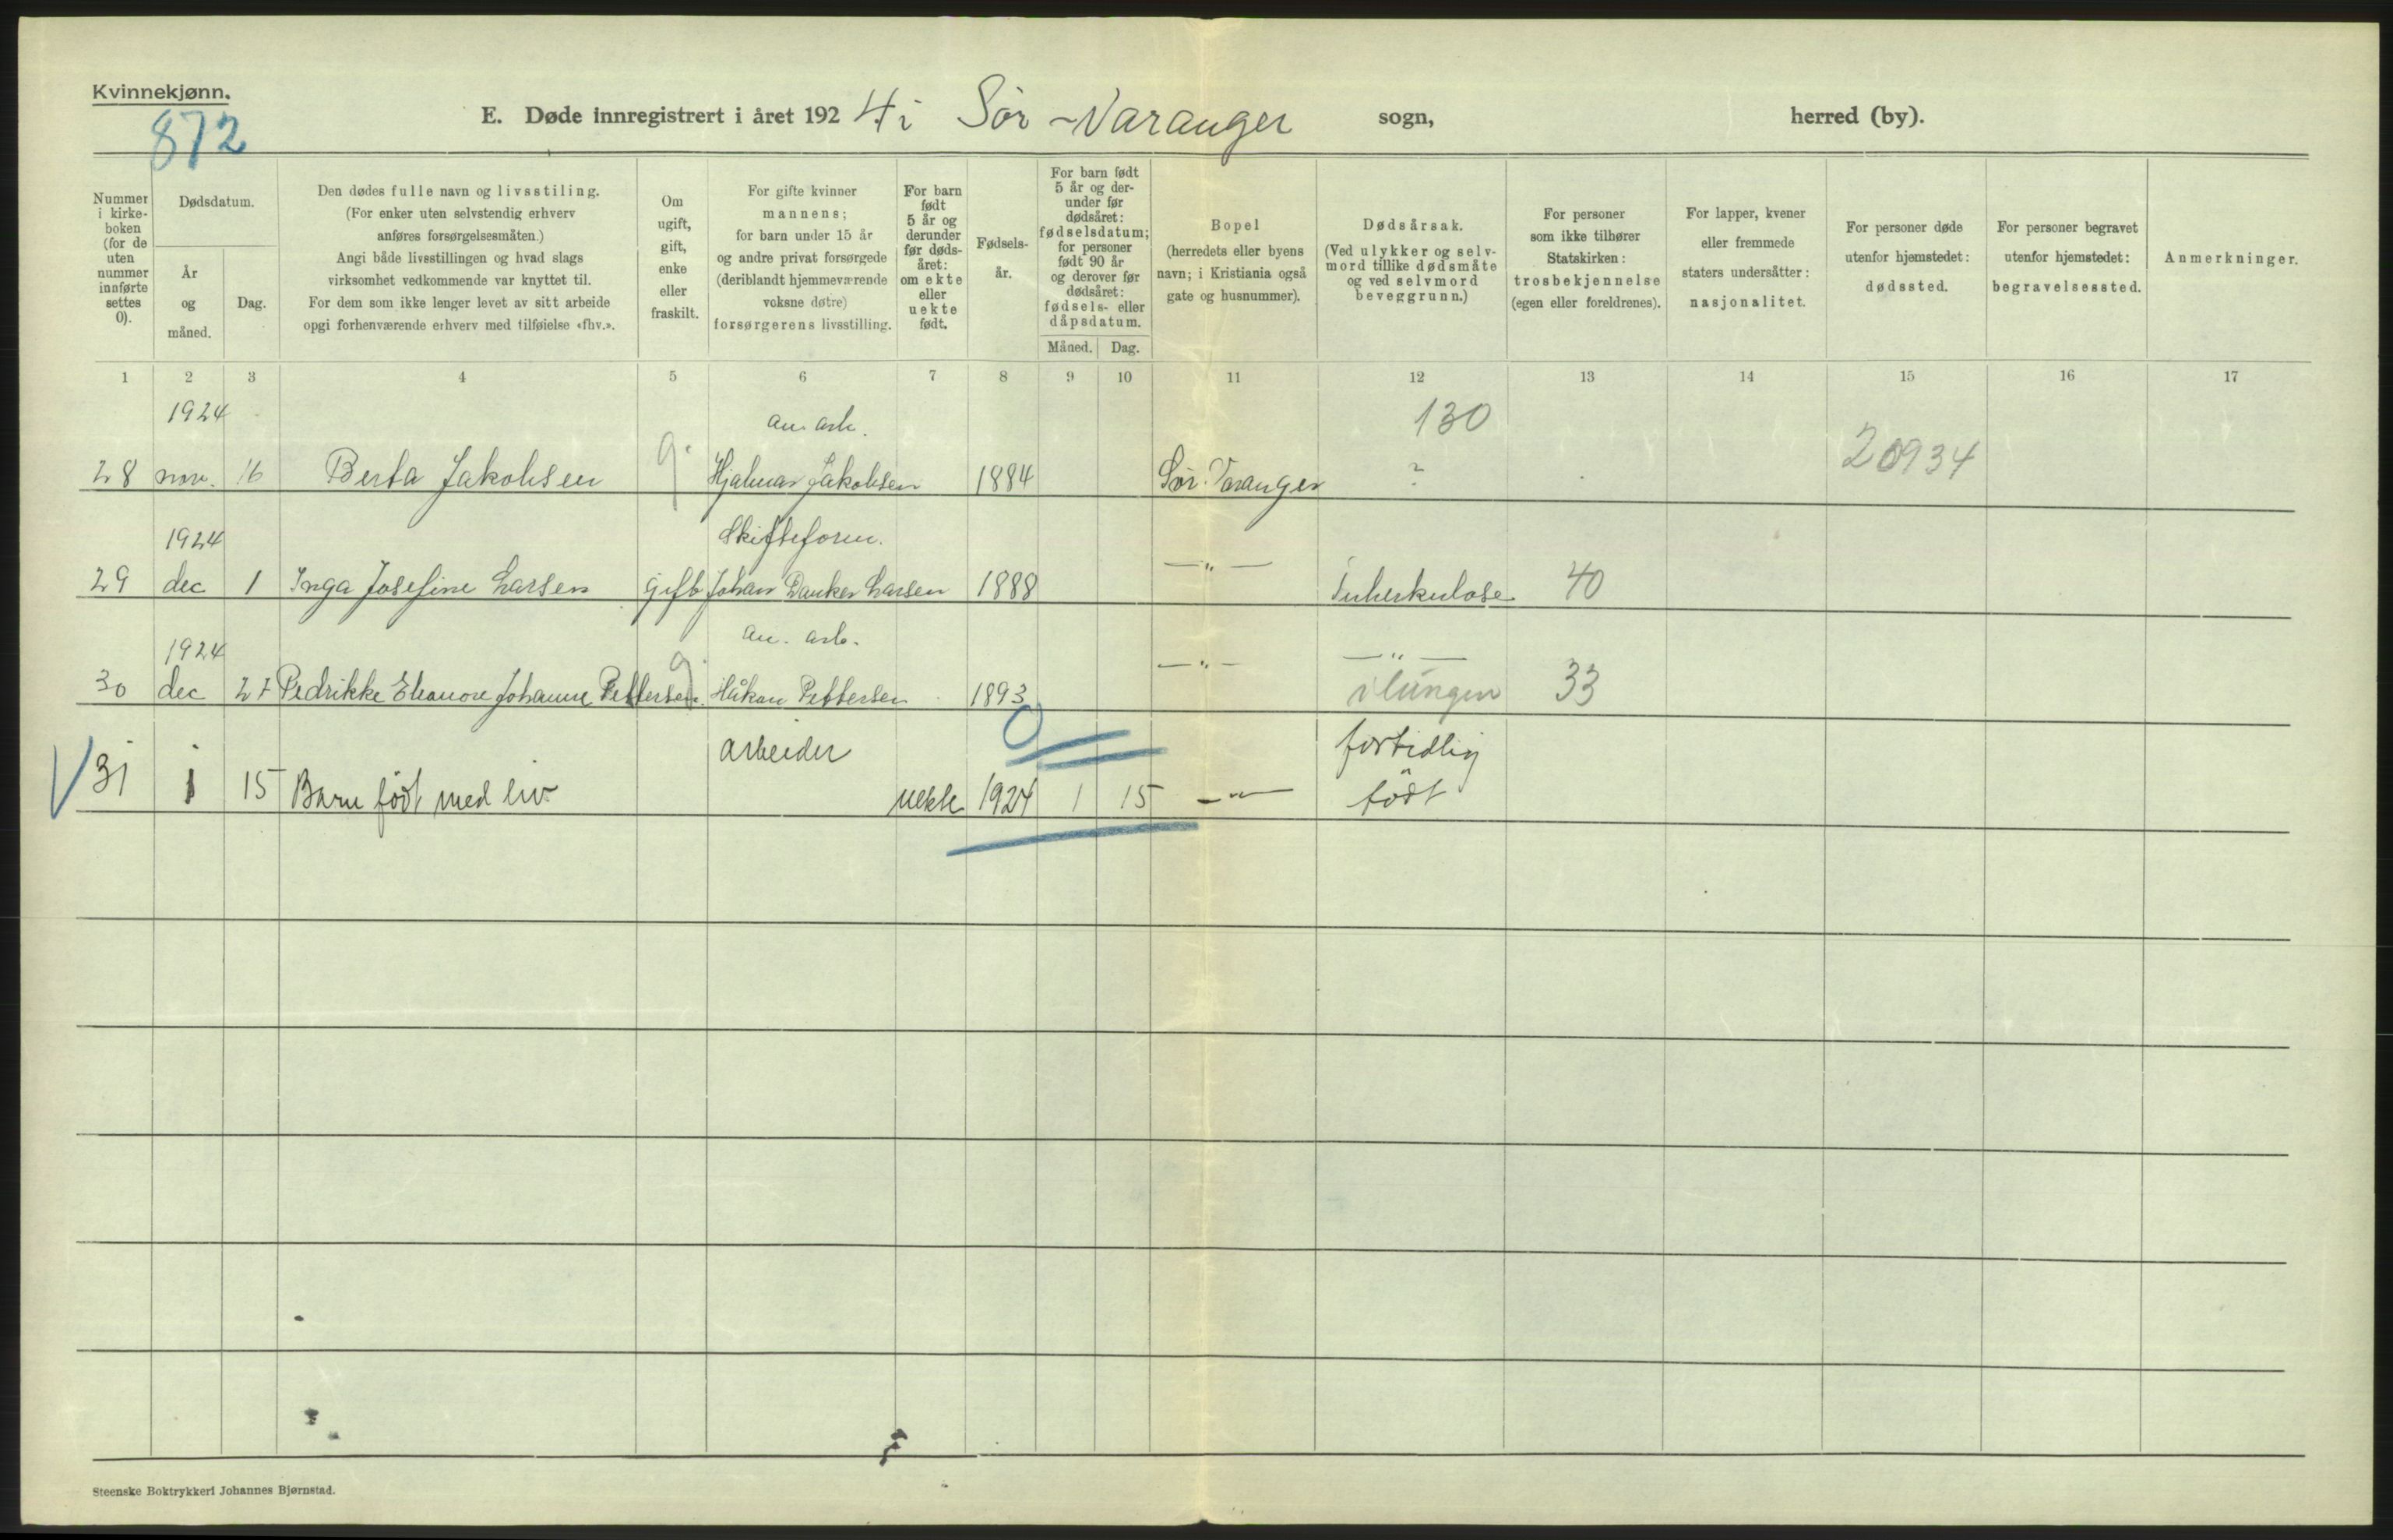 Kvinnekjønn.
872
E. Døde innregistrert i året 1924 i Sør-Varanger sogn, herred (by).
Nummer i kirke-boken (for de uten nummer innførte settes 0).
Dødsdatum.
År og måned.
Dag.
Den dødes fulle navn og livsstiling.
(For enker uten selvstendig erhverv
anføres forsørgelsesmåten.)
Angi både livsstillingen og hvad slags
virksomhet vedkommende var knyttet til.
For dem som ikke lenger levet av sitt arbeide
opgi forhenværende erhverv med tilføielse «fhv.».
Om
ugift,
gift,
enke
eller
fraskilt.
For gifte kvinner
mannens;
for barn under 15 år
og andre privat forsørgede
(deriblandt hjemmeværende
voksne døtre)
forsørgerens livsstilling.
For barn
født
5 år og
derunder
før døds-
året:
om ekte
eller
uekte
født.
Fødsels-
år.
For barn født
5 år og der-
under før
dødsåret:
fødselsdatum;
for personer
født 90 år
og derover før
dødsåret:
fødsels- eller
dåpsdatum.
Måned. Dag.
Bopel
(herredets eller byens
navn; i Kristiania også
gate og husnummer).
Dødsårsak.
(Ved ulykker og selv-
mord tillike dødsmåte
og ved selvmord
beveggrunn.)
For personer
som ikke tilhører
Statskirken:
trosbekjennelse
(egen eller foreldrenes).
For lapper, kvener
eller fremmede
staters undersåtter:
nasjonalitet.
For personer døde
utenfor hjemstedet:
dødssted.
For personer begravet
utenfor hjemstedet:
begravelsessted.
Anmerkninger.
1 2 3 4 5 6 7 8 9 10 11 12 13 14 15 16 17
1924 an. arb. 130
28 nov. 16 Berta Jakobsen g. Hjalmar Jakobsen 1884 Sør-Varanger ? 20934
1924 Skifteform.
29 dec 1 Inga Josefine Larsen gift Johan Danker Larsen 1888 —"— Tuberkulose 40
1924 an. arb.
30 dec 27 Pedrikke Eleanore Johanne Pettersen g. Håkon Pettersen 1893 —"— —"— i lungen 33
arbeider 0 fortidlig
31 1 15 Barn født med liv uekte 1924 1 15 —"— født
Steenske Boktrykkeri Johannes Bjørnstad.